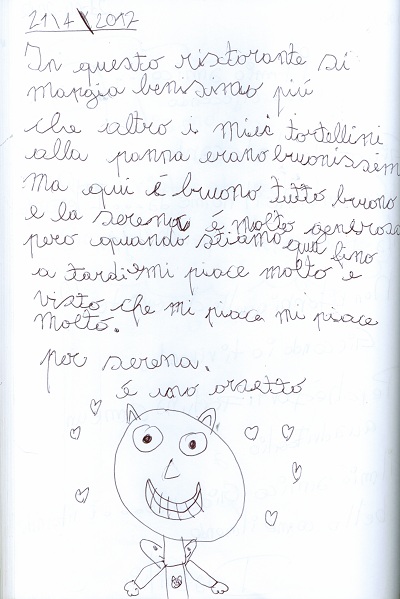 21\4\2012
In questo ristorante si
mangia benisimo più
che altro i miei tortellini
alla panna erano bruonissimi
Ma qui é bruono tutto bruono
e la serena é molto generosa
pero quando stiamo qui fino
a tardi mi piace molto e
visto che mi piace mi piace
molto.
per serena.
é uno orsetto